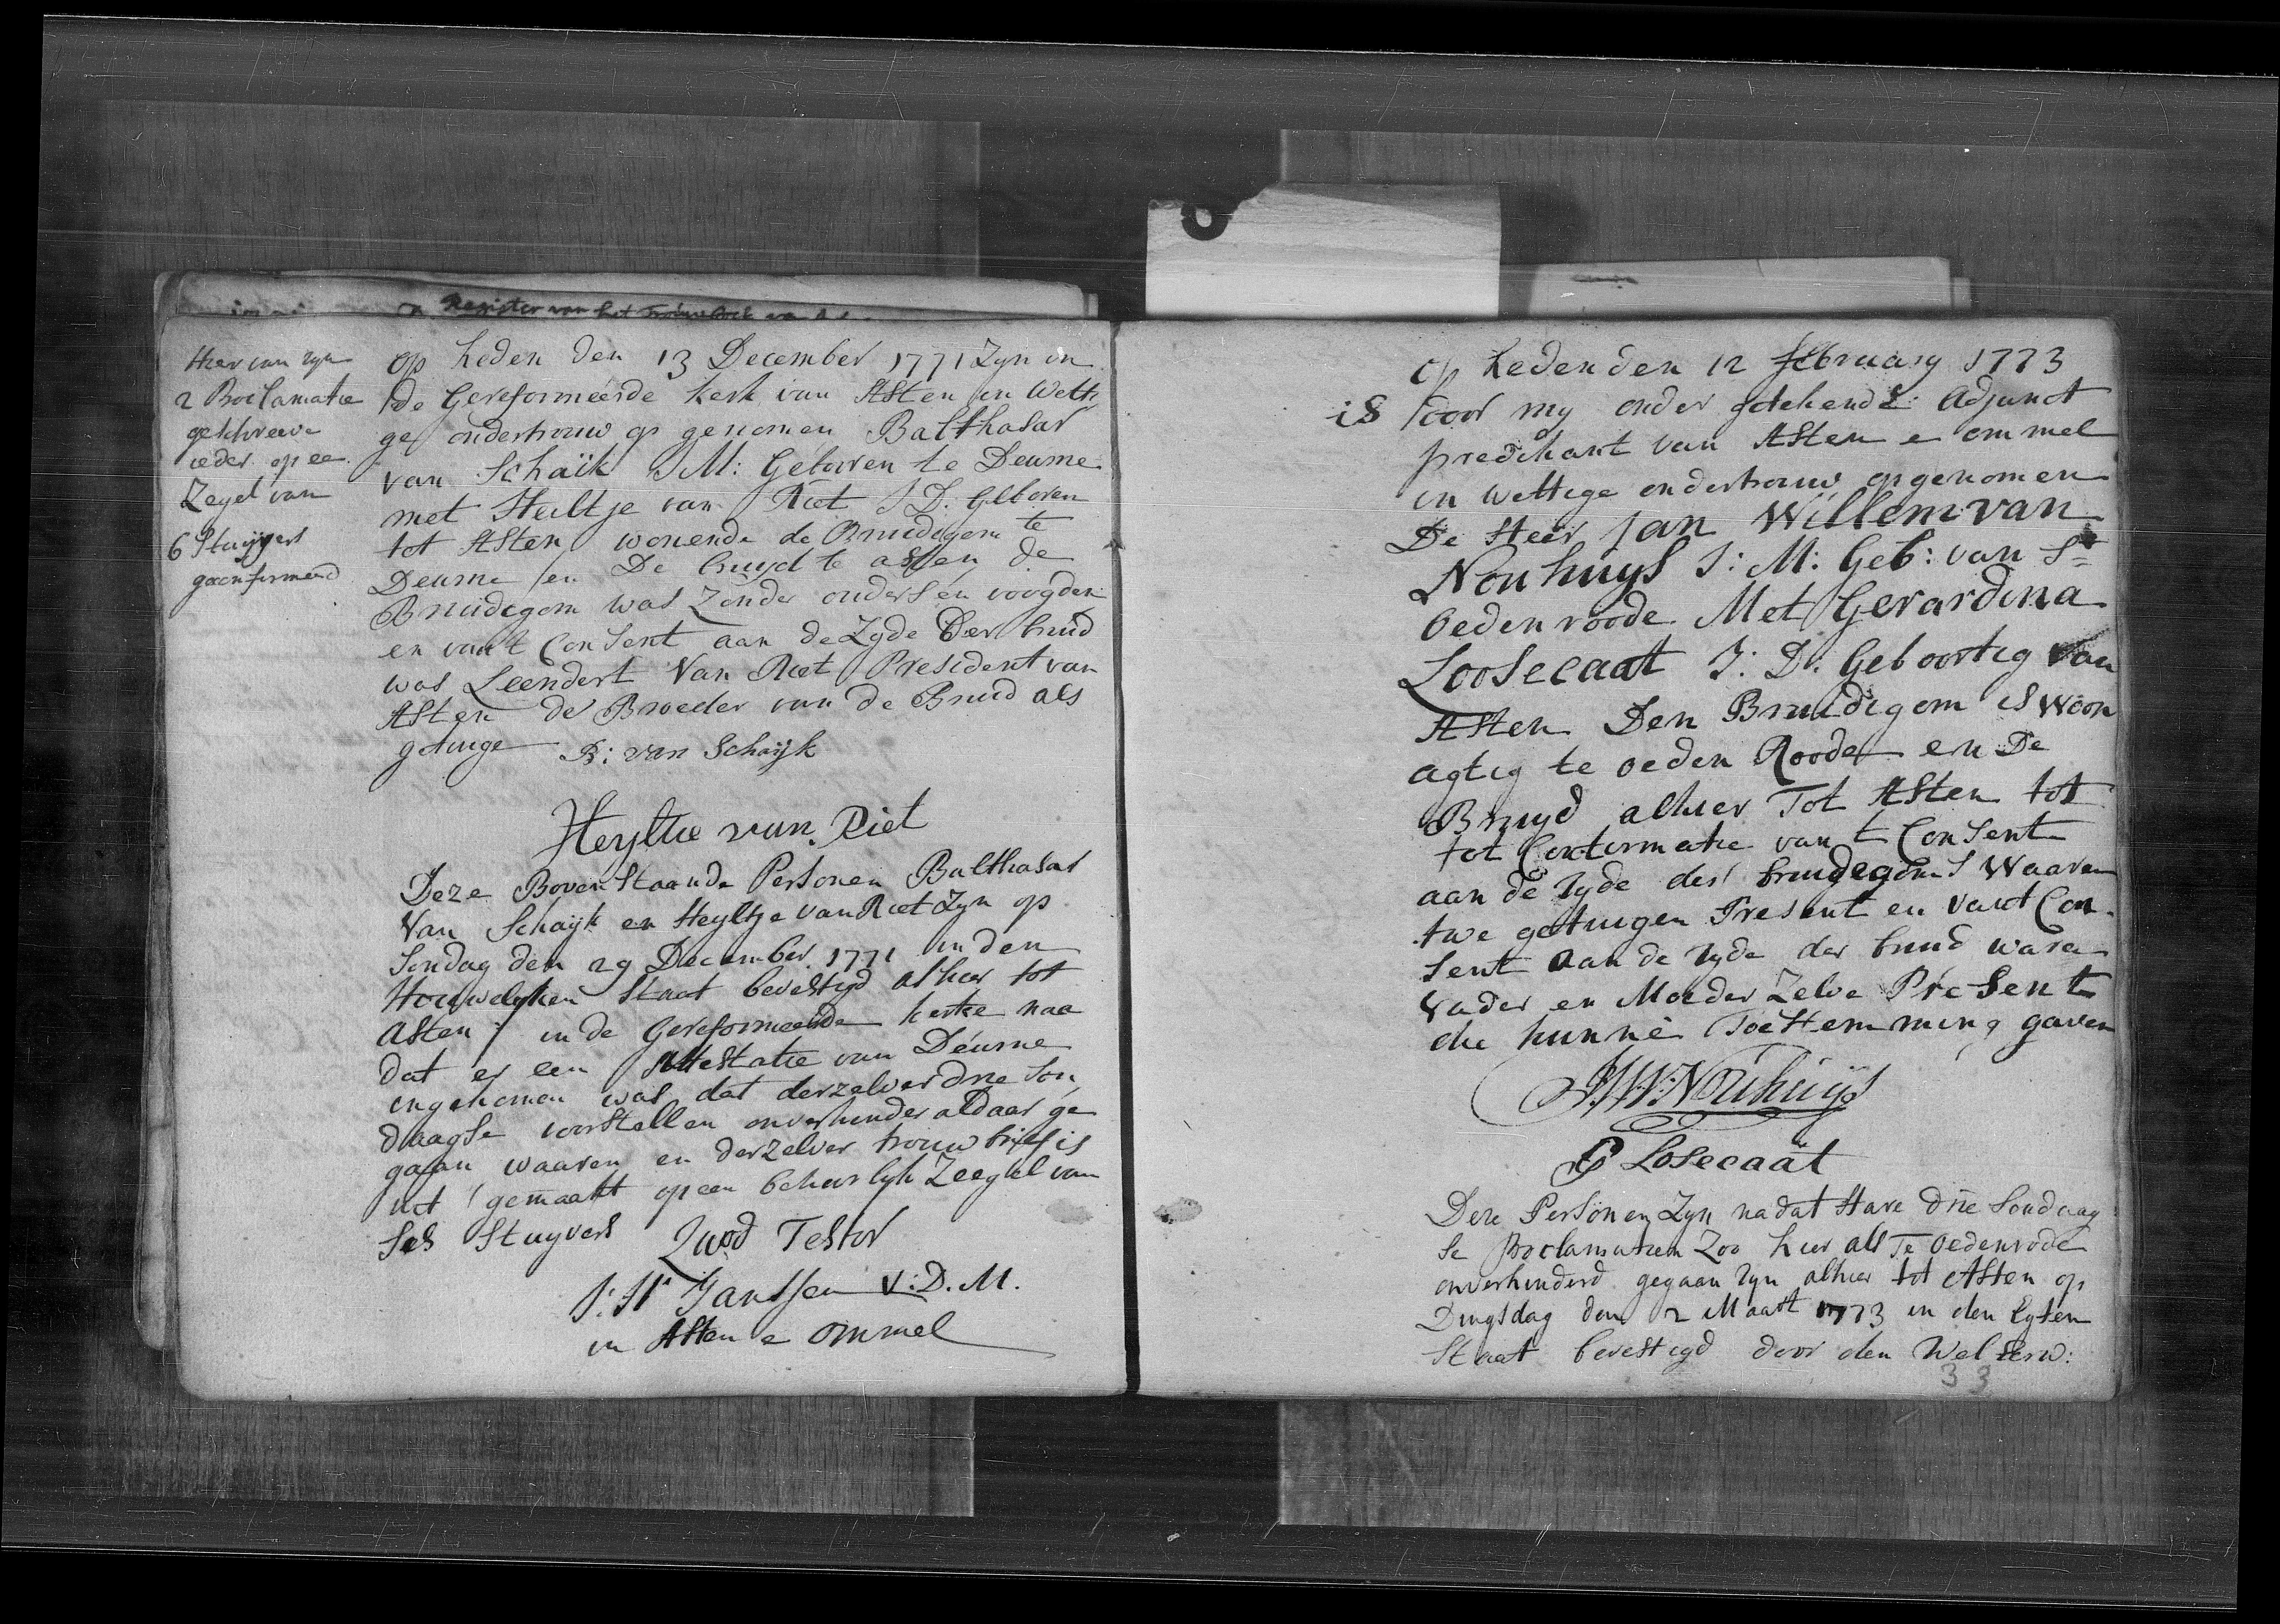 Register van het Trouwboek
Hier van zyn
2 Proclamatie
geschreeve
ieder op ee
Zegel van
6 Stuyvers
geconfirmeerd
op heden den 13 December 1771 Zyn in
de Gereformeerde kerk van Asten in Wetti
ge ondertrouw op genomen Balthasar
van Schaïk J M: Geboren te Deurne
met Heiltje van Riet J D: Geboren
tot Asten wonende de Bruidegom te
Deurne en De bruyd te asten de
Bruidegom was Zonder ouders en voogden
en van t Consent aan de Zyde Der bruid
was Leendert Van Riet President van
Asten de Broeder van de Bruid als
getuige B: van Schaijk
Heyltie van Riet
Deze Bovenstaande Personen Balthasar
Van Schayk en Heyltje van Riet Zyn op
Sondag den 29 December 1771 in den
Houwelyken Staat bevestigd alhier tot
Asten in de Gereformeerde kerke naa
dat er een Attestatie van Deurne
ingekomen was dat derzelver drie Son
daagse voorstellen onverhinder aldaar ge
gaan waaren en derzelver trouw brief is
uit gemaakt op een behoorlyk Zeegel van
Ses Stuyvers Quod Testor
J: H: Janssen V: D. M.
in Asten e Ommel
op heden den 12 february 1773
is door my onder getekende Adjunct
predikant van Asten e ommel
in wettige ondertrouw opgenomen
De Heer Jan Willem van
Nouhuys J: M: Geb: van St
Oedenroode Met Gerardina
Loosecaat J: D: Geboortig van
Asten Den Bruidigom is woon
agtig te oeden Roode en De
Bruyd alhier Tot Asten tot
tot Confirmatie van t Consent
aan de zyde des bruidegoms Waaren
twe getuigen Present en van t Con
sent aan de zyde der bruid ware
Vader en Moeder Zelve Present
die hunne Toestemming gaven
J:W:V:Nouhuijs
G Losecaat
Deze Personen Zyn nadat Hare drie Sondaag
se Proclamatien Zoo hier als Te Oedenrode
onverhinderd gegaan zyn alhier tot Asten op
Dingsdag den 2 Maart 1773 in den Egten
Staat bevestigd door den Wel Eerw:
33